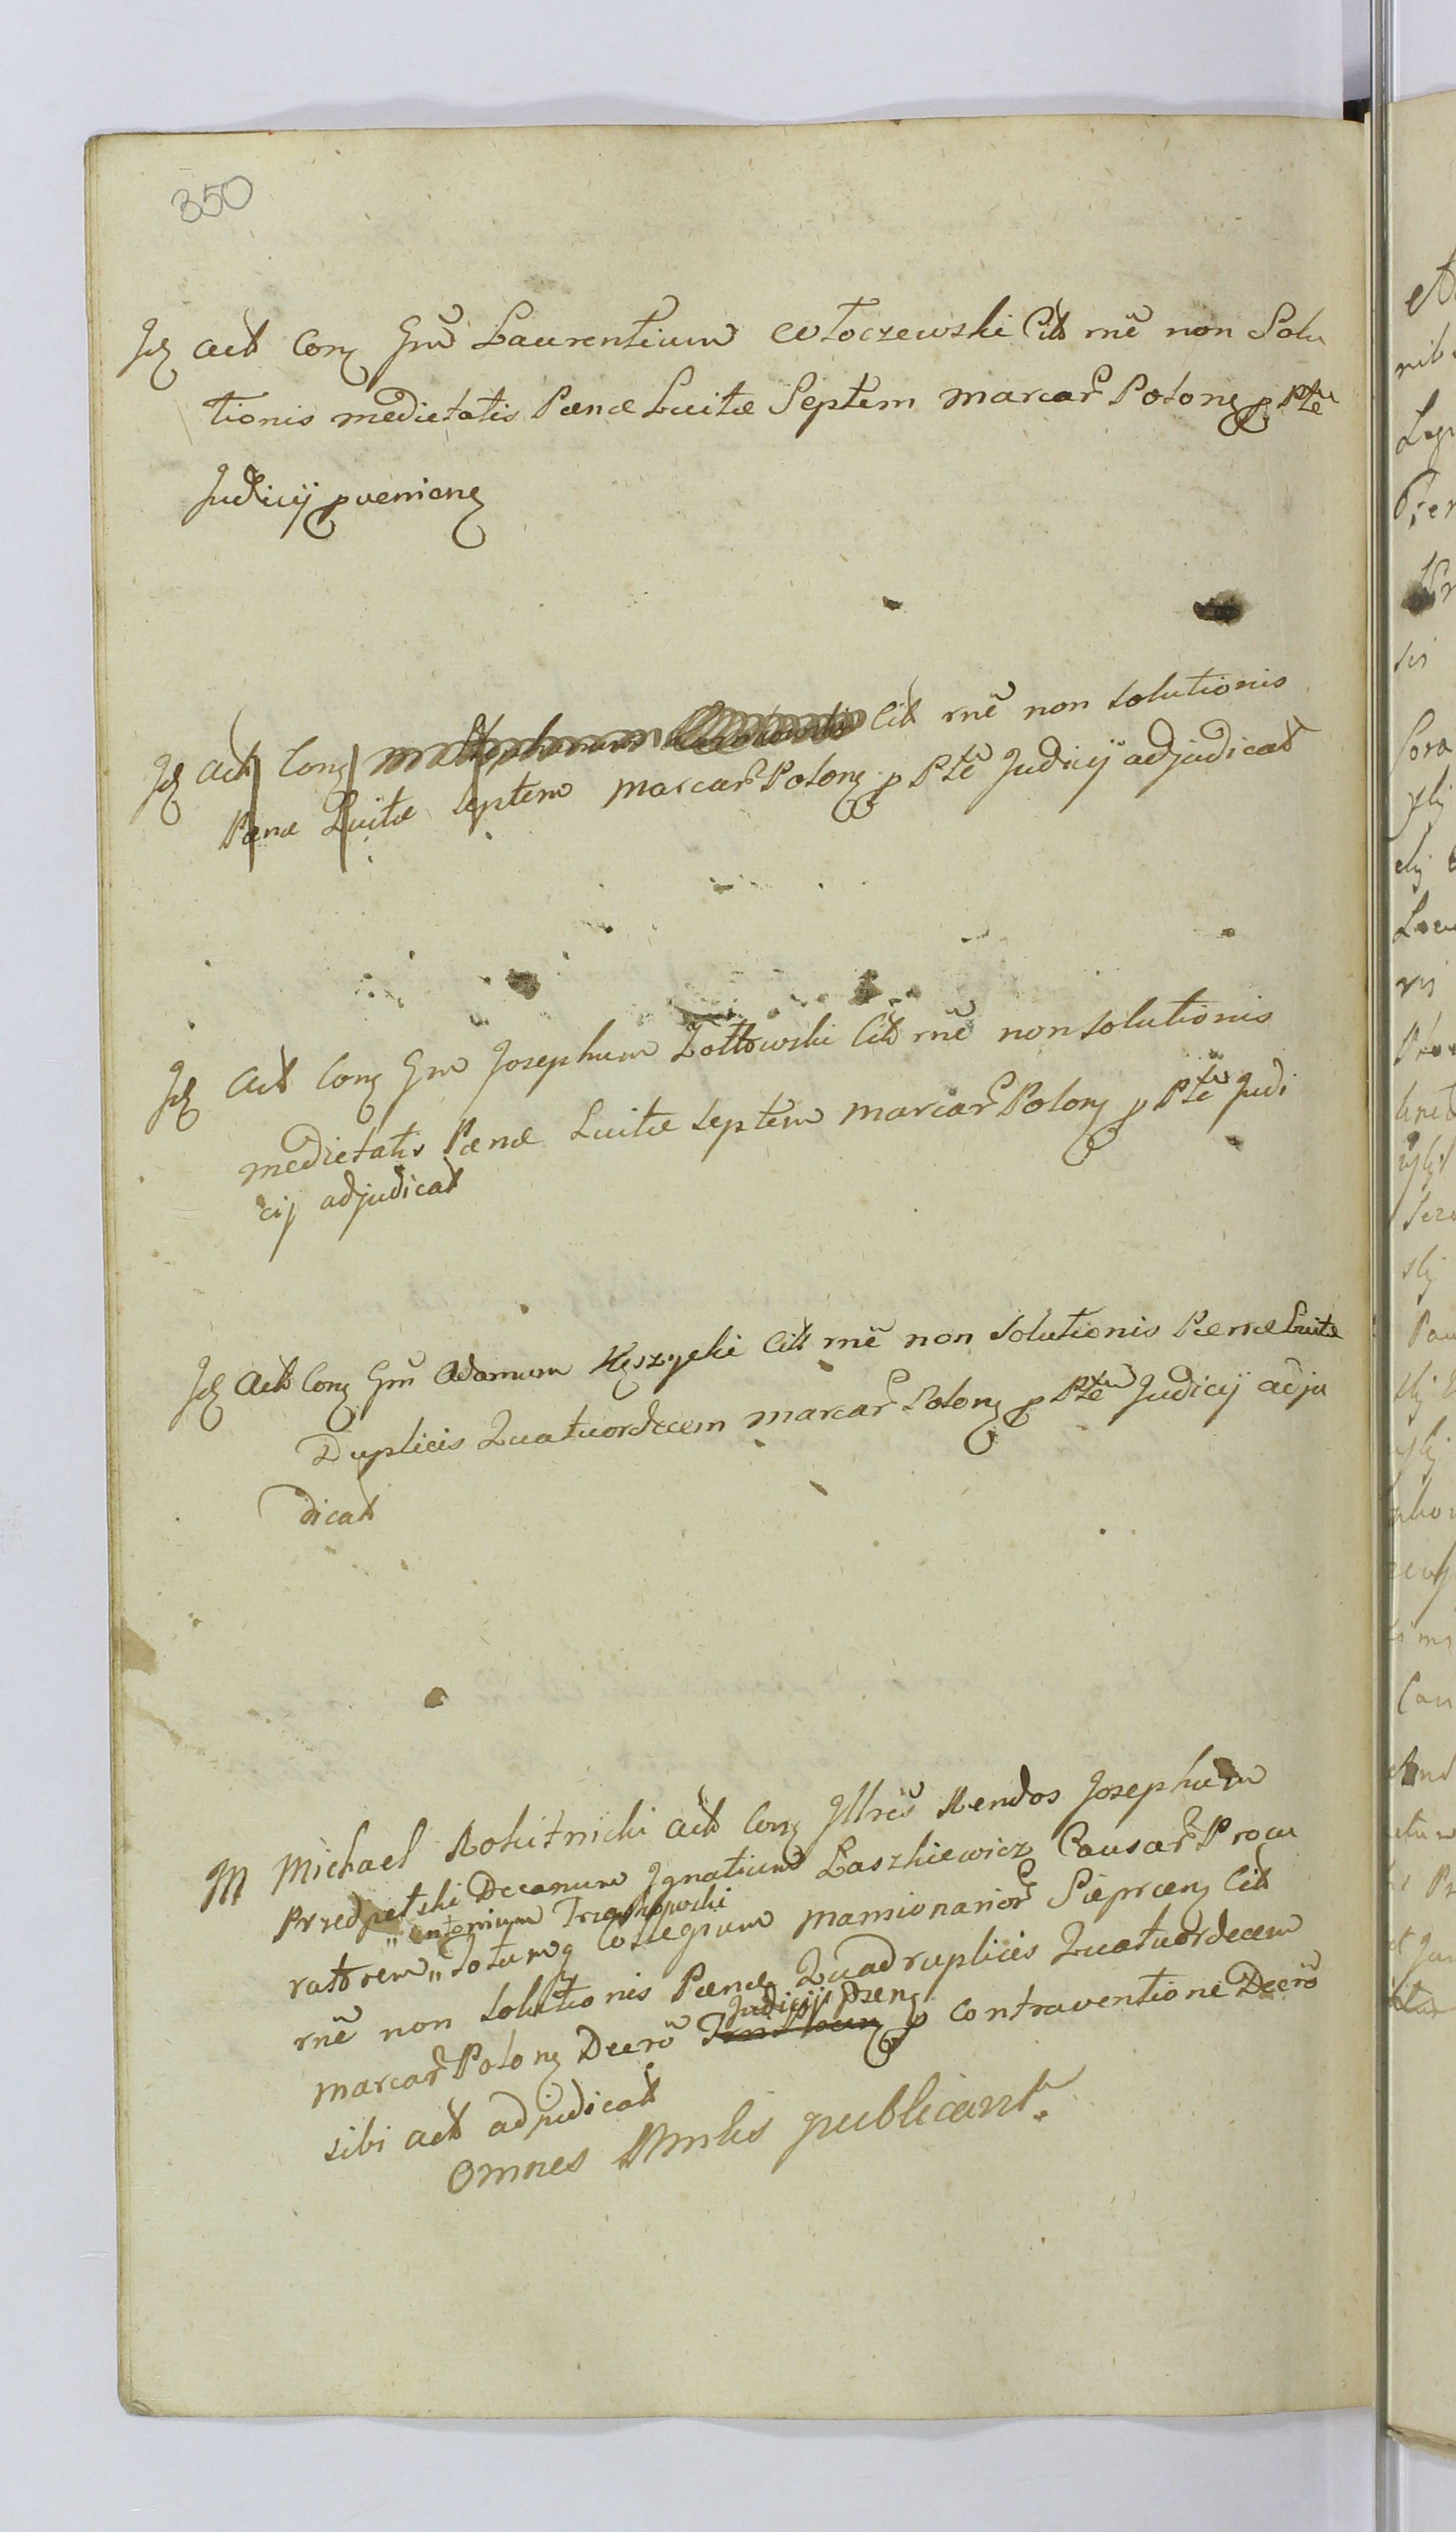 350
Id Act Conq Gm̃ Laurentium Włoczewski Citt rñe non Solu
tionis medietatis Pænæ Luitæ Septem marcar Polonq p Ptem
Judicij pvenienq
Id Act Conq Cit rñe non solutionis
Pænæ Luitæ septem marcar Polonq p Ptem Judicij adjudicat
Id Act Conq Gm Josephum Żołtowski Cit rñe non solutionis
medietatis Pænæ Luitæ septem marcar Polonq p Ptem Judi
cij adjudicat
Id Act Conq Gm̃ Adamum Kęszycki Citt rñe non solutionis Pænæ Luitæ
Duplicis Quatuordecem marcar Polonq p Ptem Judicij adju
dicat
M Michael Rokitnicki Act Conq Illres Rendos Josephum
Przedpełski Decanum Ignatium Laszkiewicz Causar Procu
" Antonium Trzaskowski
ratorem " Totumq Collegium Mansionarior Sieprcenq Cit
rñe non solutionis Pænæ Quadruplicis Quatuordecem
Judicij Pzenq
marcar Polonq Decro p Contraventione Decro
sibi act adjudicat
Omnes publicant.